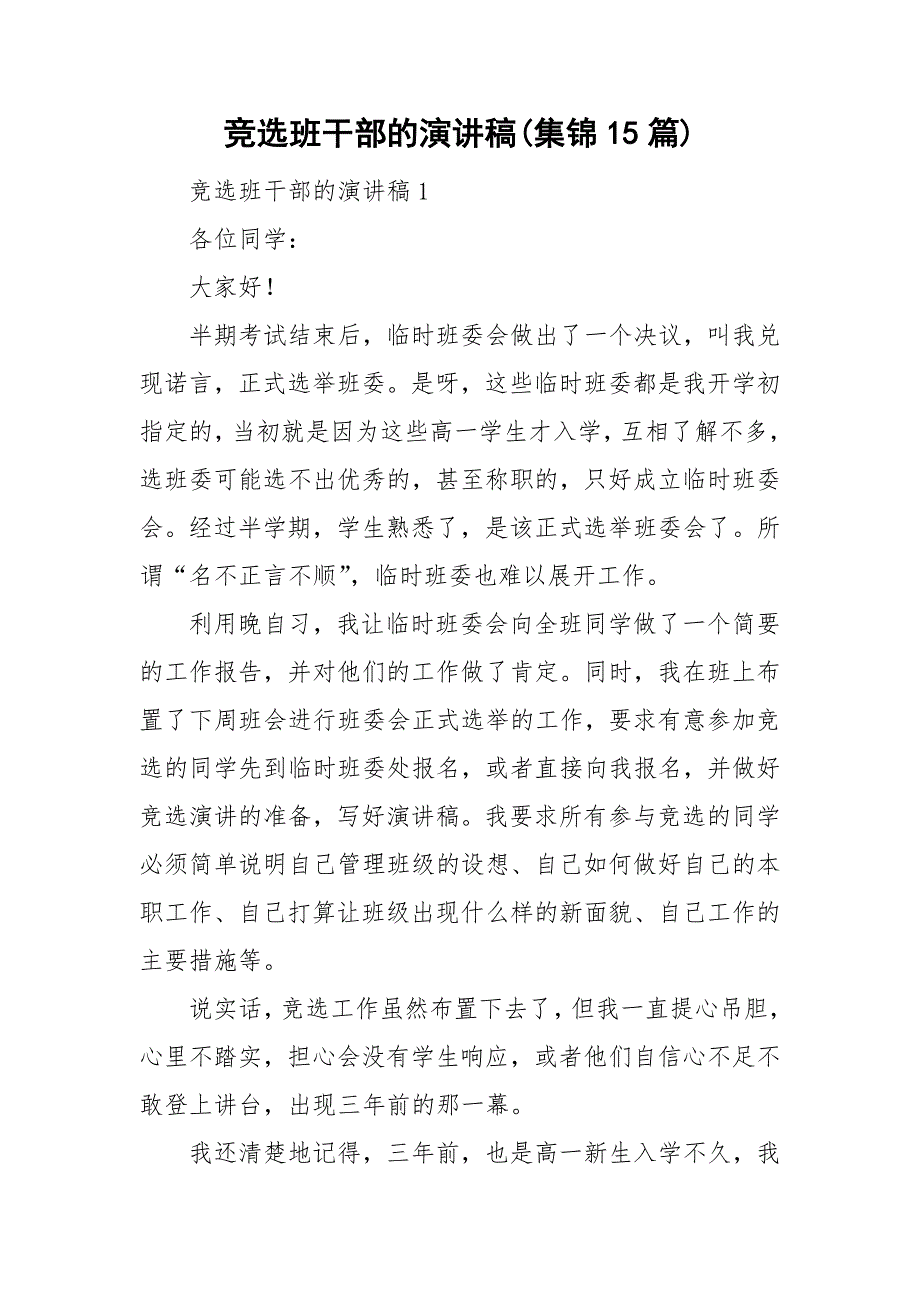 竞选班干部的演讲稿(集锦15篇)
竞选班干部的演讲稿1
各位同学：
大家好！
半期考试结束后，临时班委会做出了一个决议，叫我兑
现诺言，正式选举班委。是呀，这些临时班委都是我开学初
指定的，当初就是因为这些高一学生才入学，互相了解不多，
选班委可能选不出优秀的，甚至称职的，只好成立临时班委
会。经过半学期，学生熟悉了，是该正式选举班委会了。所
谓“名不正言不顺”，临时班委也难以展开工作。
利用晚自习，我让临时班委会向全班同学做了一个简要
的工作报告，并对他们的工作做了肯定。同时，我在班上布
置了下周班会进行班委会正式选举的工作，要求有意参加竞
选的同学先到临时班委处报名，或者直接向我报名，并做好
竞选演讲的准备，写好演讲稿。我要求所有参与竞选的同学
必须简单说明自己管理班级的设想、自己如何做好自己的本
职工作、自己打算让班级出现什么样的新面貌、自己工作的
主要措施等。
说实话，竞选工作虽然布置下去了，但我一直提心吊胆，
心里不踏实，担心会没有学生响应，或者他们自信心不足不
敢登上讲台，出现三年前的那一幕。
我还清楚地记得，三年前，也是高一新生入学不久，我